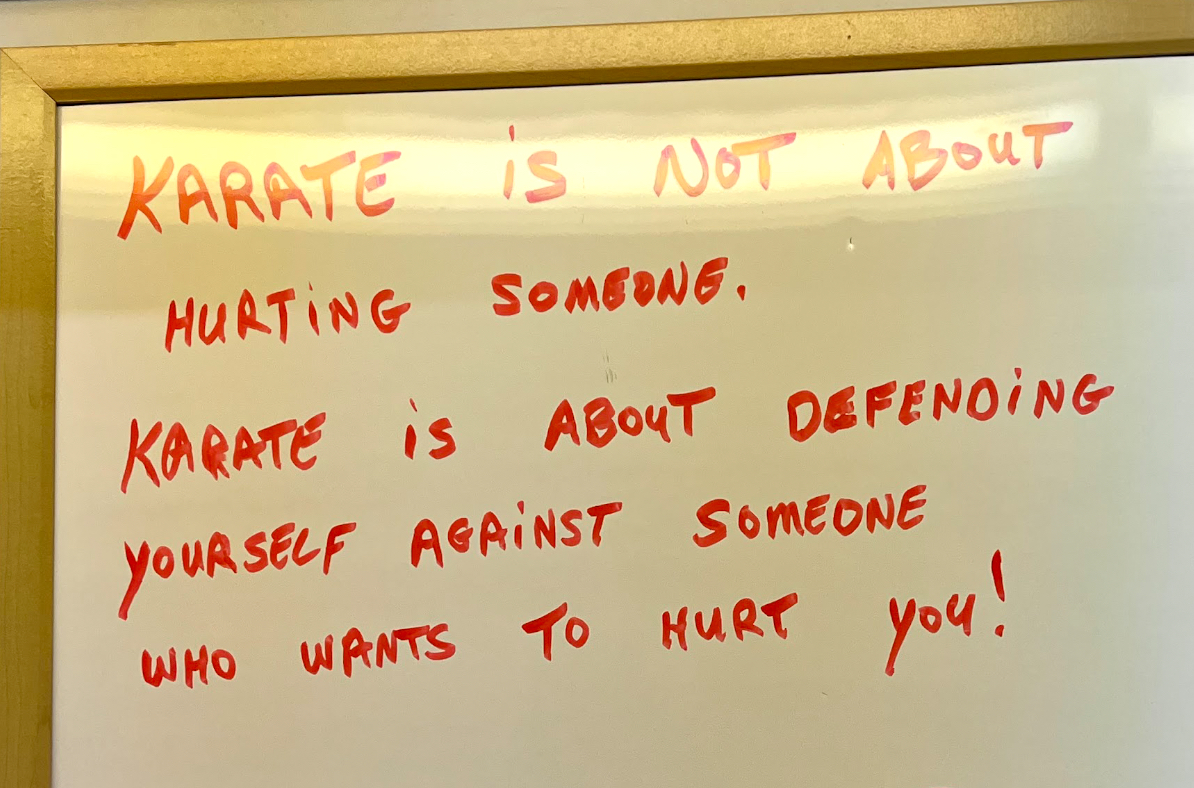 KARATE iS NOT ABOUT
HURTiNG SOMEONE.
KARATE iS ABOUT DEFENDiNG
YOURSELF AGAiNST SOMEONE
WHO WANTS TO HURT YOU!